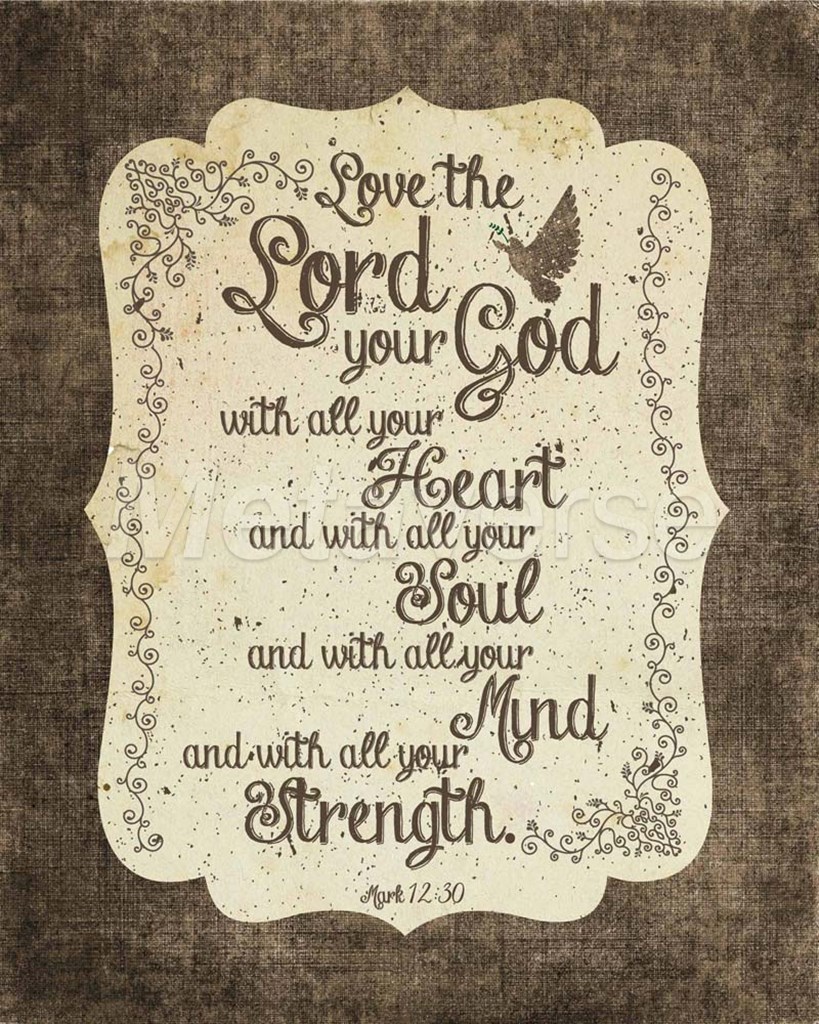 Love the
Lord
your God
with all your
Heart
and with all your
Soul
and with all your
Mind
and with all your
Strength.
Mark 12:30
Metaverse